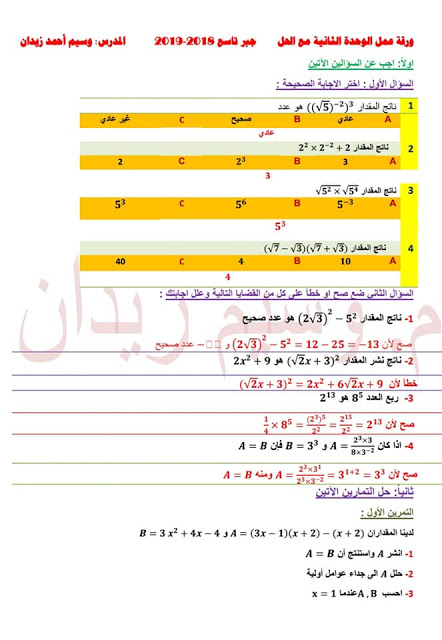 ورقة عمل الوحدة الثانية مع الحل جبر تاسع 2018-2019 المدرس: وسيم أحمد زيدان
اولاً: اجب عن السؤالين الآتين
السؤال الأول : اختر الاجابة الصحيحة :
1 ناتج المقدار ((√5)⁻²)³ هو عدد
A عادي B صحيح C غير عادي
عادي
2 ناتج المقدار 2² × 2⁻² + 2
A 3 B 2³ C 2
3
3 ناتج المقدار √5² × √5⁴
A 5⁻³ B 5⁶ C 5³
5³
4 ناتج المقدار (√7 − √3)(√7 + √3)
A 10 B 4 C 40
4
السؤال الثاني ضع صح او خطأ على كل من القضايا التالية وعلل اجابتك :
1- ناتج المقدار (2√3)² − 5² هو عدد صحيح
صح لأن (2√3)² − 5² = 12 − 25 = −13 و − عدد صحيح
2- ناتج نشر المقدار (√2x + 3)² هو 2x² + 9
خطأ لأن (√2x + 3)² = 2x² + 6√2x + 9
3- ربع العدد 8⁵ هو 2¹³
صح لأن 1/4 × 8⁵ = (2³)⁵/2² = 2¹⁵/2² = 2¹³
4- اذا كان A = 2³×3/8×3⁻² و B = 3³ فإن A = B
صح لأن A = 2³×3¹/2³×3⁻² = 3¹⁺² = 3³ ومنه A = B
ثانياً: حل التمارين الآتين
التمرين الأول :
لدينا المقداران A = (3x − 1)(x + 2) − (x + 2) و B = 3 x² + 4x − 4
1- انشر A واستنتج أن A = B
2- حلل A الى جداء عوامل أولية
3- احسب A , B عندما x = 1
م وسيم زيدان